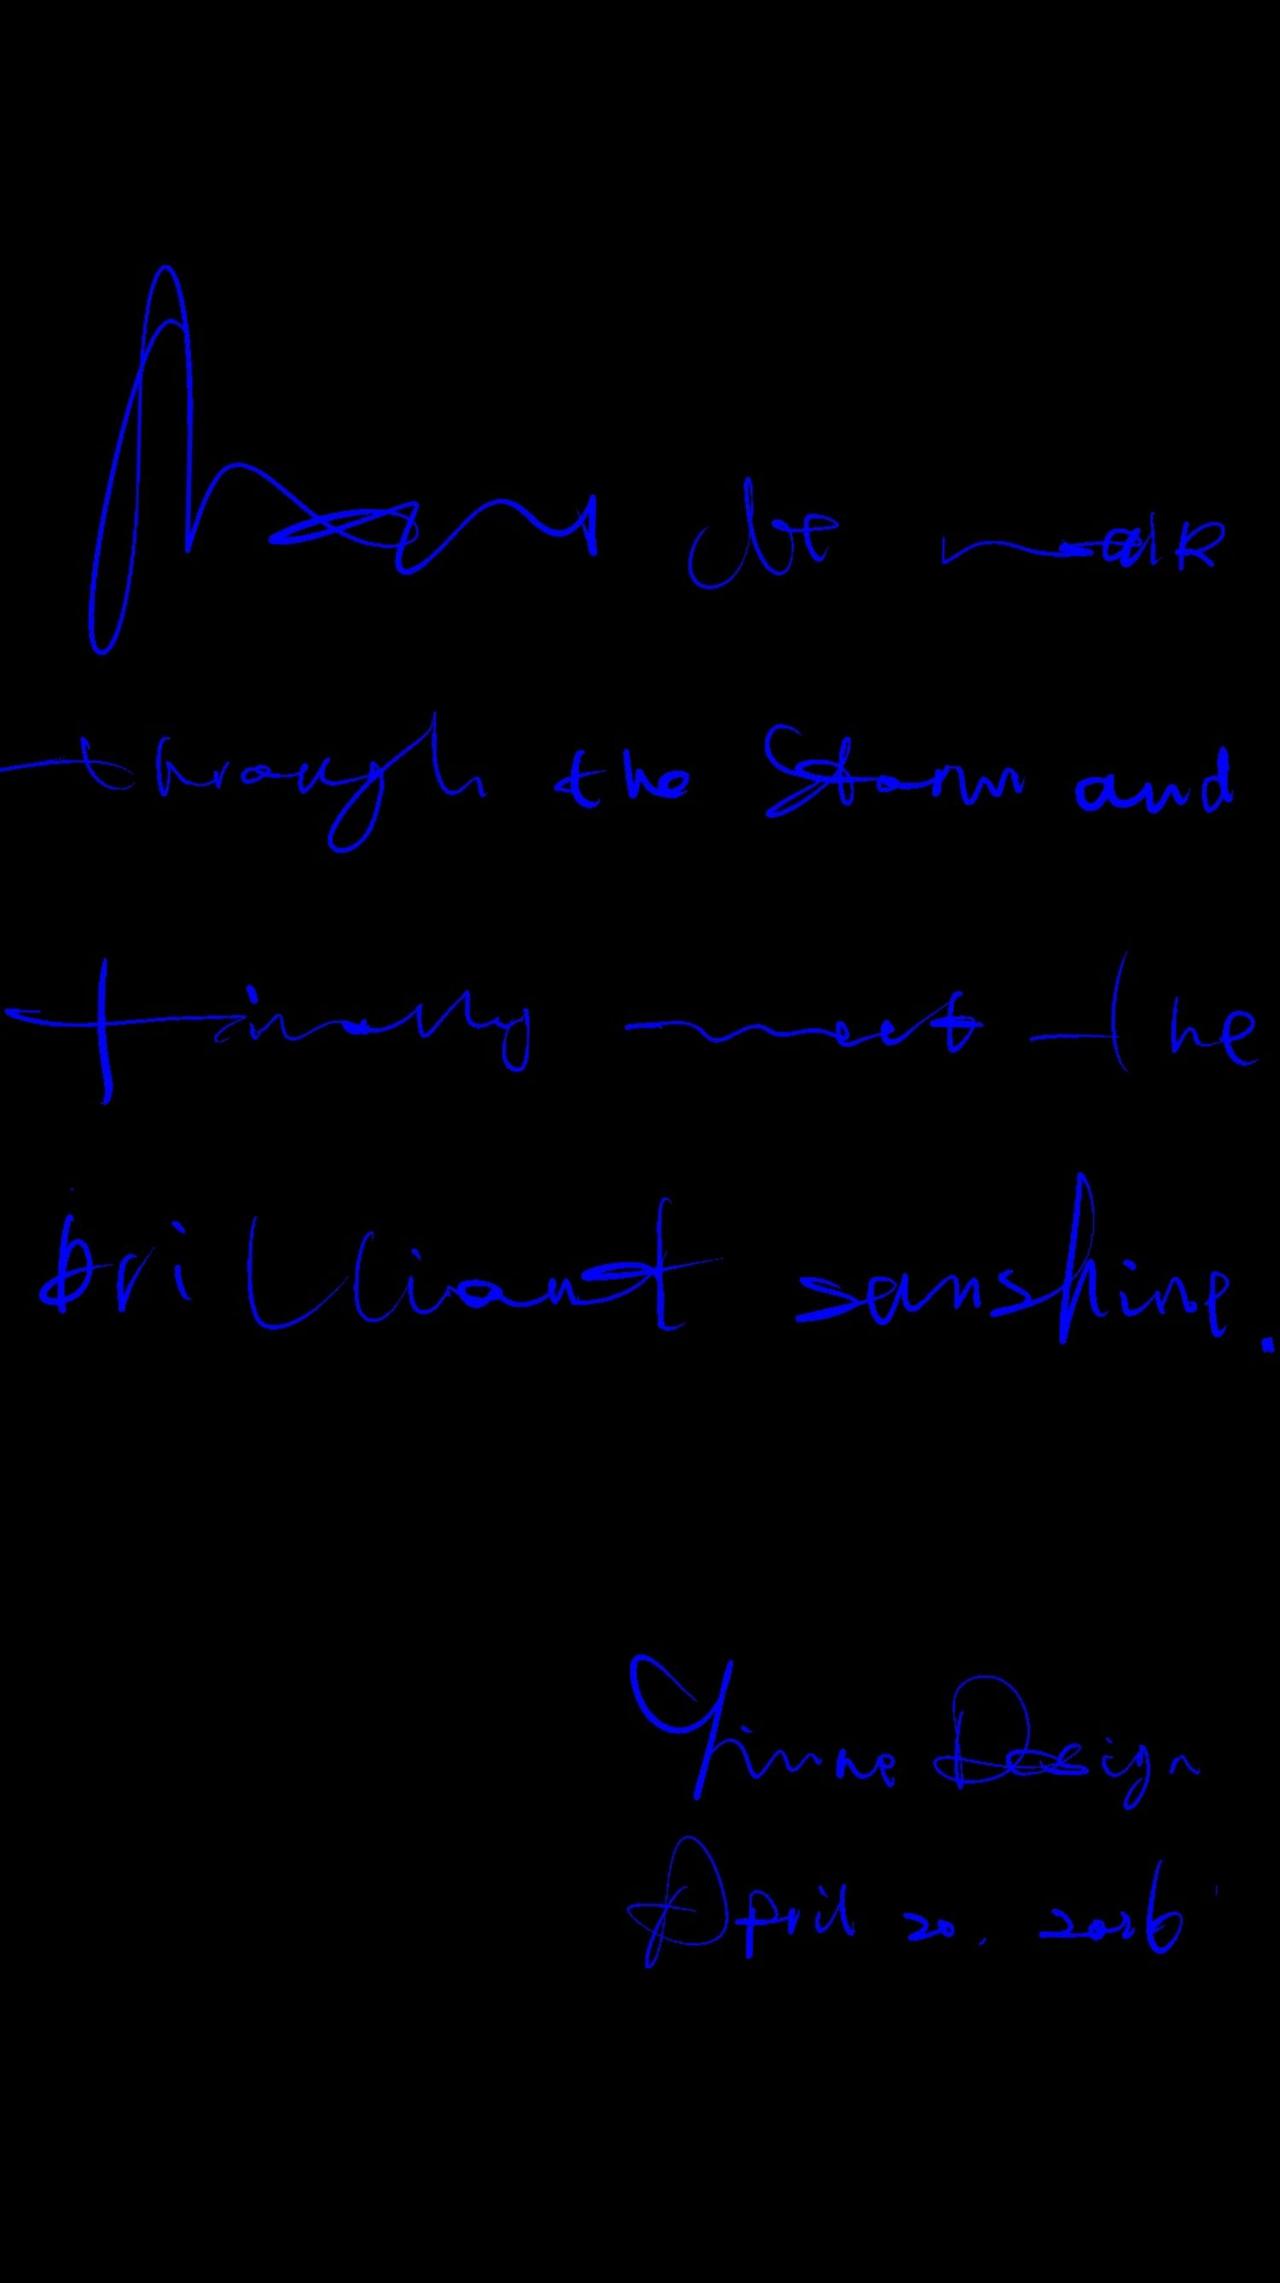 May we walk
through the Storm and
finally meet the
brilliant sunshine.
Yinne Design
April 20. 2026